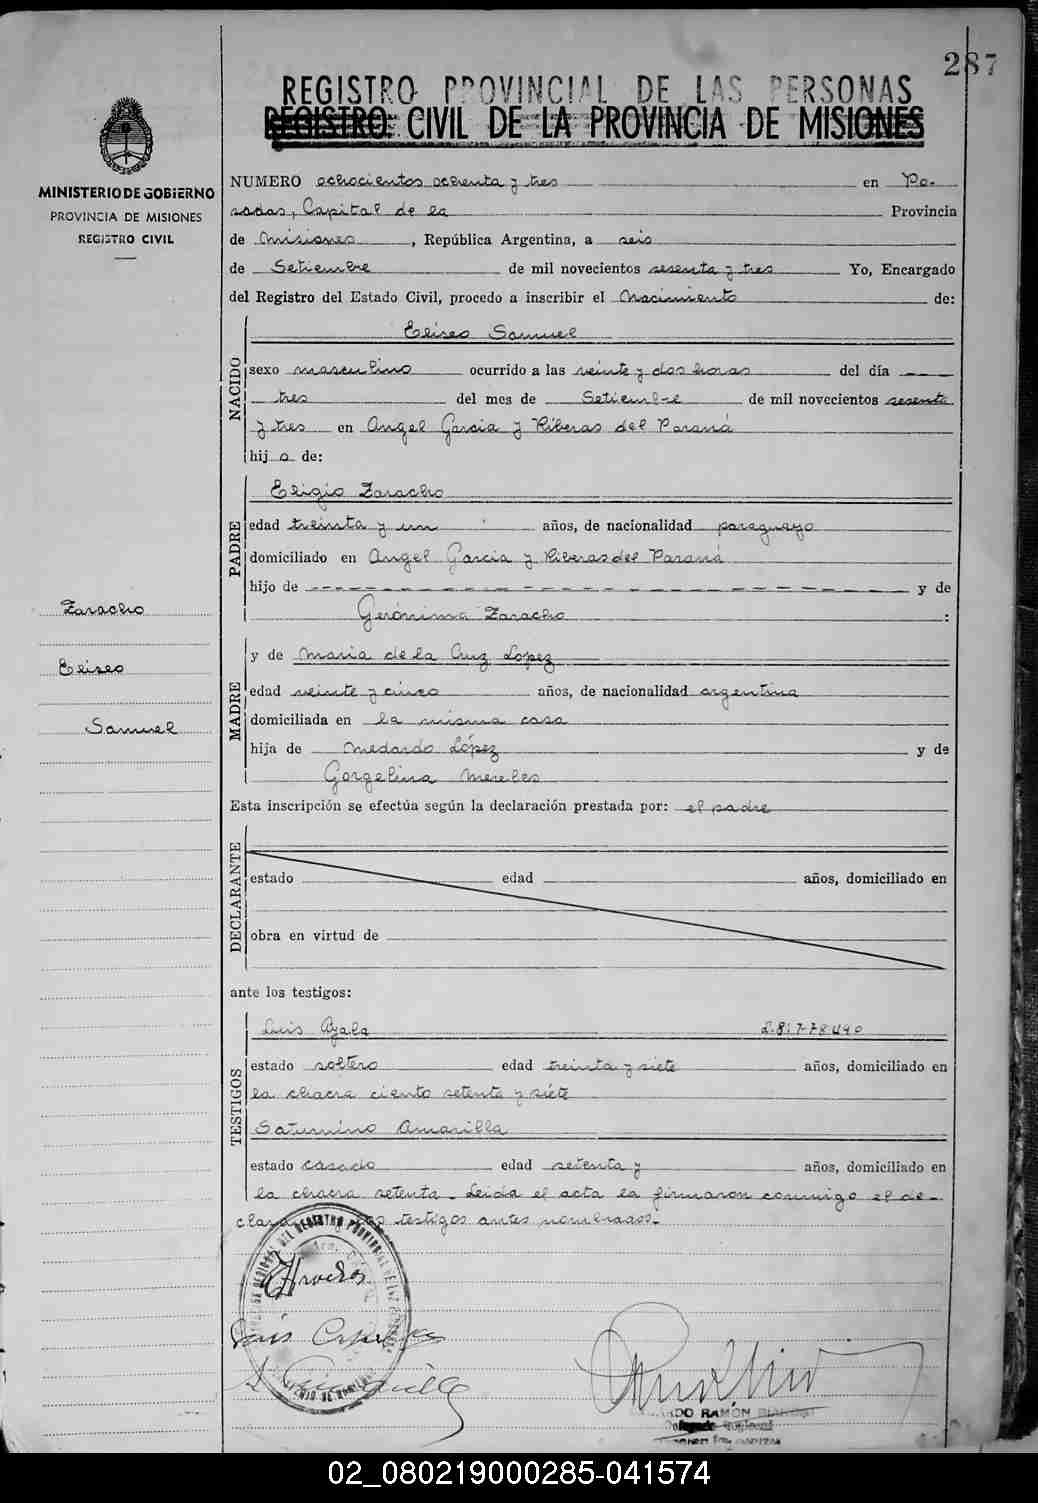 287
REGISTRO PROVINCIAL DE LAS PERSONAS
REGISTRO CIVIL DE LA PROVINCIA DE MISIONES
MINISTERIO DE GOBIERNO
PROVINCIA DE MISIONES
REGISTRO CIVIL
NUMERO ochocientos ochenta y tres en Po-
sadas, Capital de la Provincia
de Misiones, República Argentina, a seis
de Setiembre de mil novecientos sesenta y tres Yo, Encargado
del Registro del Estado Civil, procedo a inscribir el Nacimiento de:
NACIDO
Eliseo Samuel
sexo masculino ocurrido a las veinte y dos horas del día
tres del mes de Setiembre de mil novecientos sesenta
y tres en Angel Garcia y Riberas del Paraná
hijo de:
PADRE
Eligio Zaracho
edad treinta y un años, de nacionalidad paraguayo
domiciliado en Angel Garcia y Riberas del Paraná
hijo de - - - - - - - - - - - - - - - - - - - - y de
Gerónima Zaracho :
Zaracho
Eliseo
Samuel
MADRE
y de Maria de la Cruz Lopez
edad veinte y cinco años, de nacionalidad argentina
domiciliada en la misma casa
hija de Medardo López y de
Gorgelina Mereles
Esta inscripción se efectúa según la declaración prestada por: el padre
DECLARANTE
estado edad años, domiciliado en
obra en virtud de
ante los testigos:
TESTIGOS
Luis Ayala
estado soltero edad treinta y siete años, domiciliado en
la chacra ciento setenta y siete
Saturnino Amarilla
estado casado edad setenta y años, domiciliado en
la chacra setenta - Leida el acta la firmaron conmigo el de-
testigos antes nombrados.-
RAMÓN
02_080219000285-041574